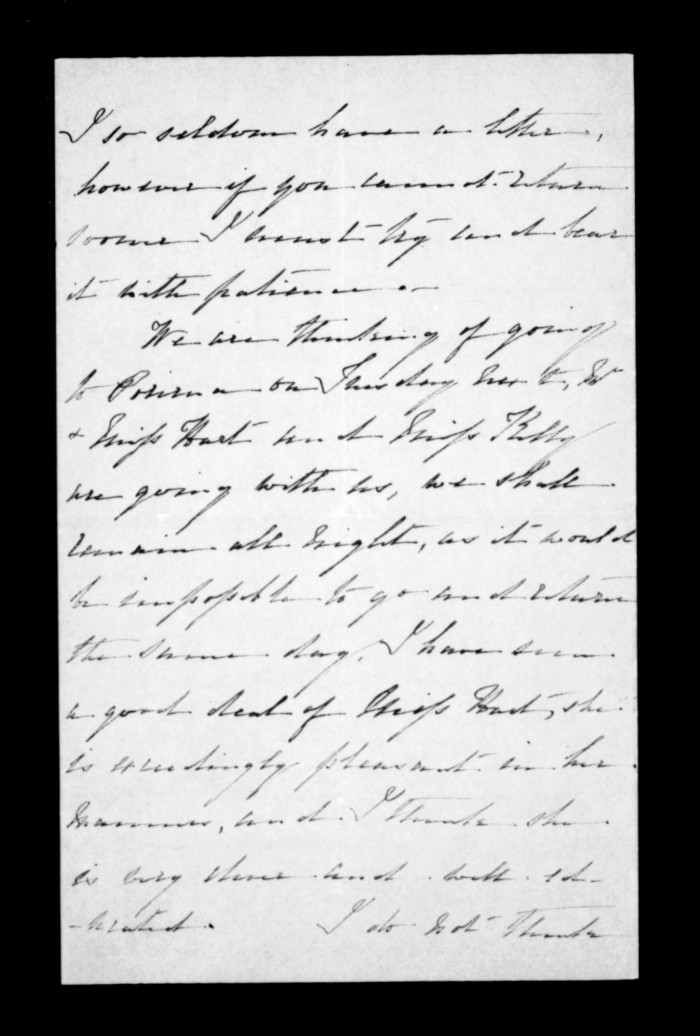 I so seldom have a letter,
however if you cannot return
sooner I must try and bear
it with patience. —
We are thinking of going
to Porirua on Tuesday next, Mr
& Miss Hart and Miss Kelly
are going with us, we shall
remain all night, as it would
be impossible to go and return
the same day. I have seen
a good deal of Miss Hart, she
is exceedingly pleasant in her
manner, and I think she
is very clever and well ed-
-ucated. I do not think